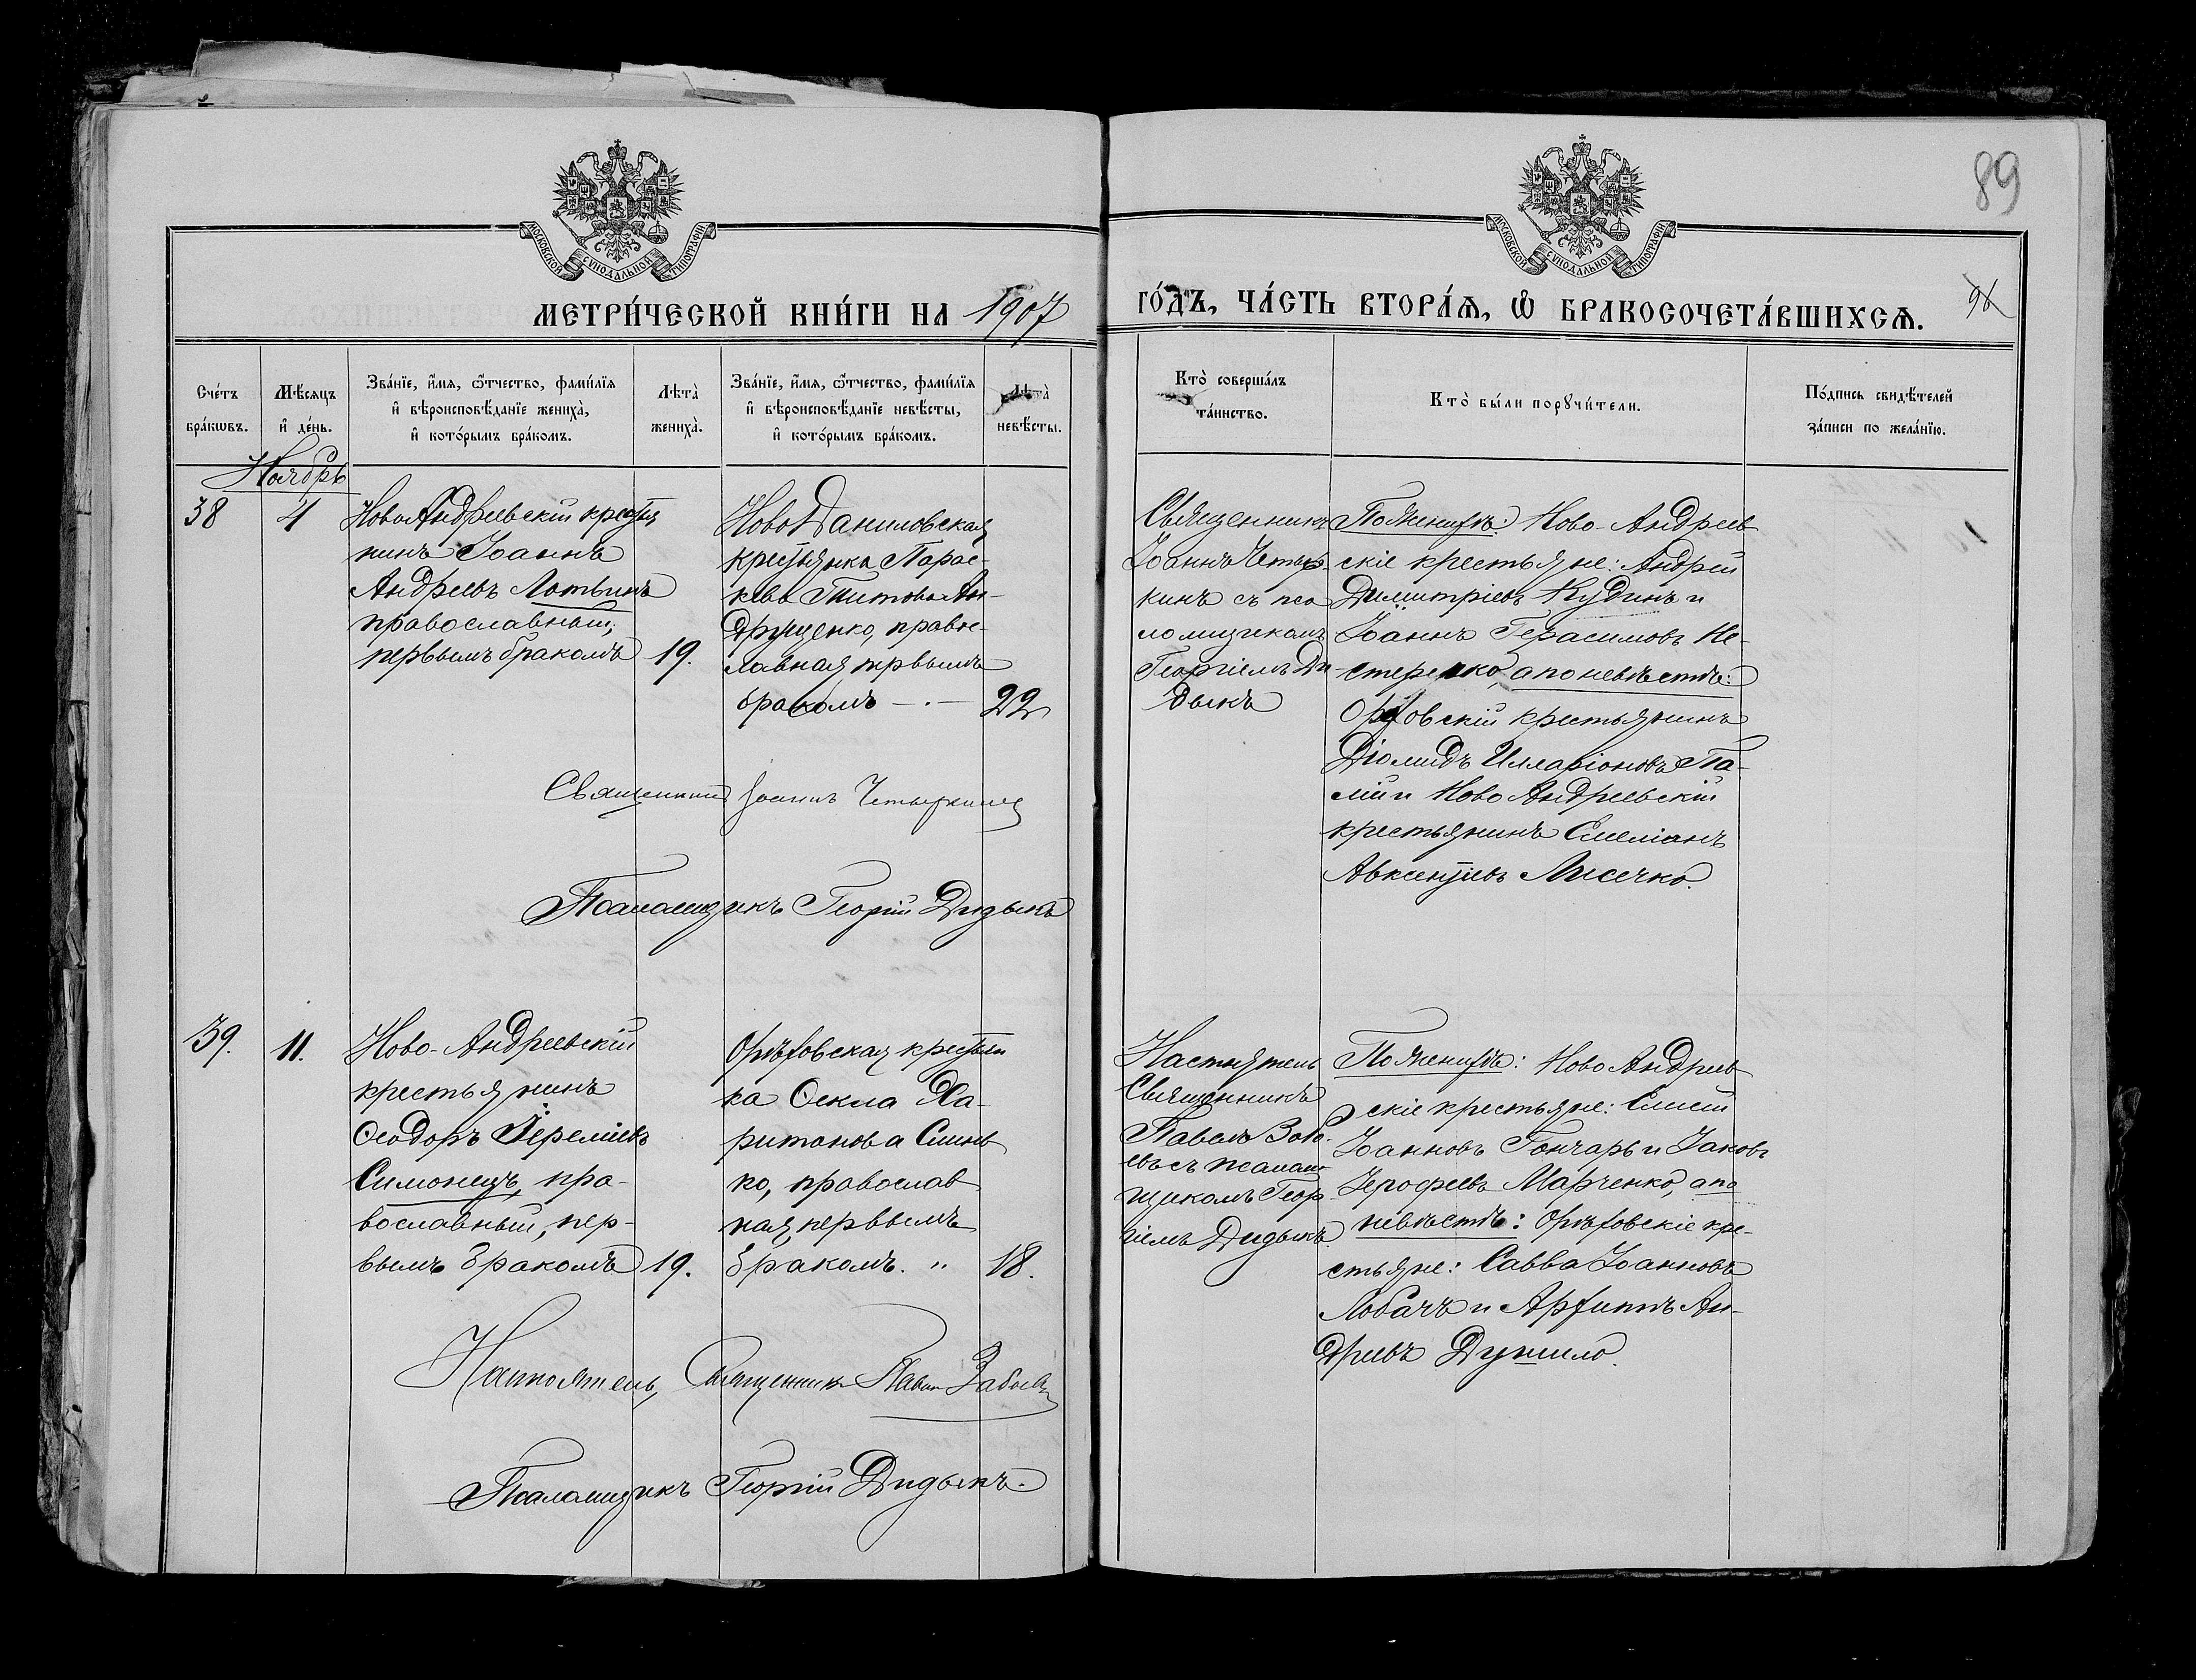 89
МОСКОВСКОЙ СѴНОДАЛЬНОЙ ТИПОГРАФІИ
МОСКОВСКОЙ СѴНОДАЛЬНОЙ ТИПОГРАФІИ
МЕТРИ́ЧЕСКОЙ КНИ́ГИ НА 1907
ГО́ДЪ, ЧА́СТЬ ВТОРА́Ѧ, Ѽ БРАКОСОЧЕТА́ВШИХСѦ.
Сче́тъ
бра́кѡвъ.
Мѣ́сяцъ
и҆ де́нь.
Зва́нїе, и҆́мѧ, ѻ҆́тчество, фами́лїѧ
и҆ вѣроисповѣ́данїе жениха̀,
и҆ кото́рымъ бра́комъ.
Лѣта̀
жениха̀.
Зва́нїе, и҆́мѧ, ѻ҆́тчество, фами́лїѧ
и҆ вѣроисповѣ́данїе невѣ́сты,
и҆ кото́рымъ бра́комъ.
Лѣта̀
невѣ́сты.
Кто̀ соверша́лъ
та́инство.
Кто̀ бы́ли порꙋчи́тели.
По́дпись свидѣ́телей
за́писи по жела́нїю.
Ноябрь
38
4
Ново Андреевскій крестья
нинъ Іоаннъ
Андреевъ Лотвинъ
православный,
первымъ бракомъ
19.
Ново Даниловская
крестьянка Парас-
кева Титова Ан-
друщенко, правос-
лавная первымъ
бракомъ — . —
22
Священникъ
Іоаннъ Четыр-
кинъ съ пса
ломщикомъ
Георгіемъ Ди
дыкъ
По женихѣ: Ново-Андреев
скіе крестьяне: Андрей
Димитріевъ Кудинъ и
Іоаннъ Герасимовъ Не-
стеренко, а по невѣстѣ:
Орѣховскій крестьянинъ
Діомидъ Илларіоновъ Па-
лій и Ново Андреевскій
крестьянинъ Емеліанъ
Авксентіевъ Лисечко.
Священникъ Іоаннъ Четыркинъ
Псаломщикъ Георгій Дидыкъ
39.
11.
Ново-Андреевскій
крестьянинъ
Ѳеодоръ Іереміевъ
Симонецъ, пра-
вославный, пер-
вымъ бракомъ
19.
Орѣховская крестьян
ка Ѳекла Ха-
ритонова Синь
ко, православ
ная, первымъ
бракомъ. "
18.
Настоятель
Священникъ
Павелъ Забо-
евъ съ псалом
щикомъ Геор-
гіемъ Дидыкъ.
По женихѣ: Ново Андреев
скіе крестьяне: Елисей
Іоанновъ Гончаръ и Іаковъ
Іерофеевъ Марченко, а по
невѣстѣ: Орѣховскіе кре-
стьяне: Савва Іоанновъ
Лобачъ и Архиппъ Ан-
дреевъ
Настоятель, Священникъ Павелъ Забоевъ
Псаломщикъ Георгій Дидыкъ.